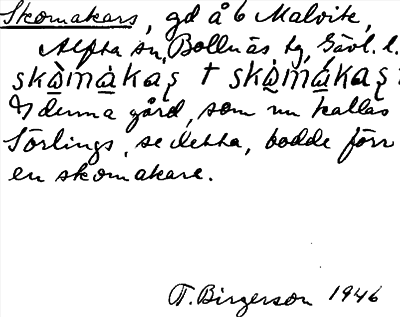 Skomakars, gd å 6 Malvik,
Alfta sn, Bollnäs tg, Gävl. l.
skòmàkaş + skòmákaş
I denna gård, som nu kallas
Sörlings, se detta, bodde förr
en skomakare.
T. Birgerson 1946